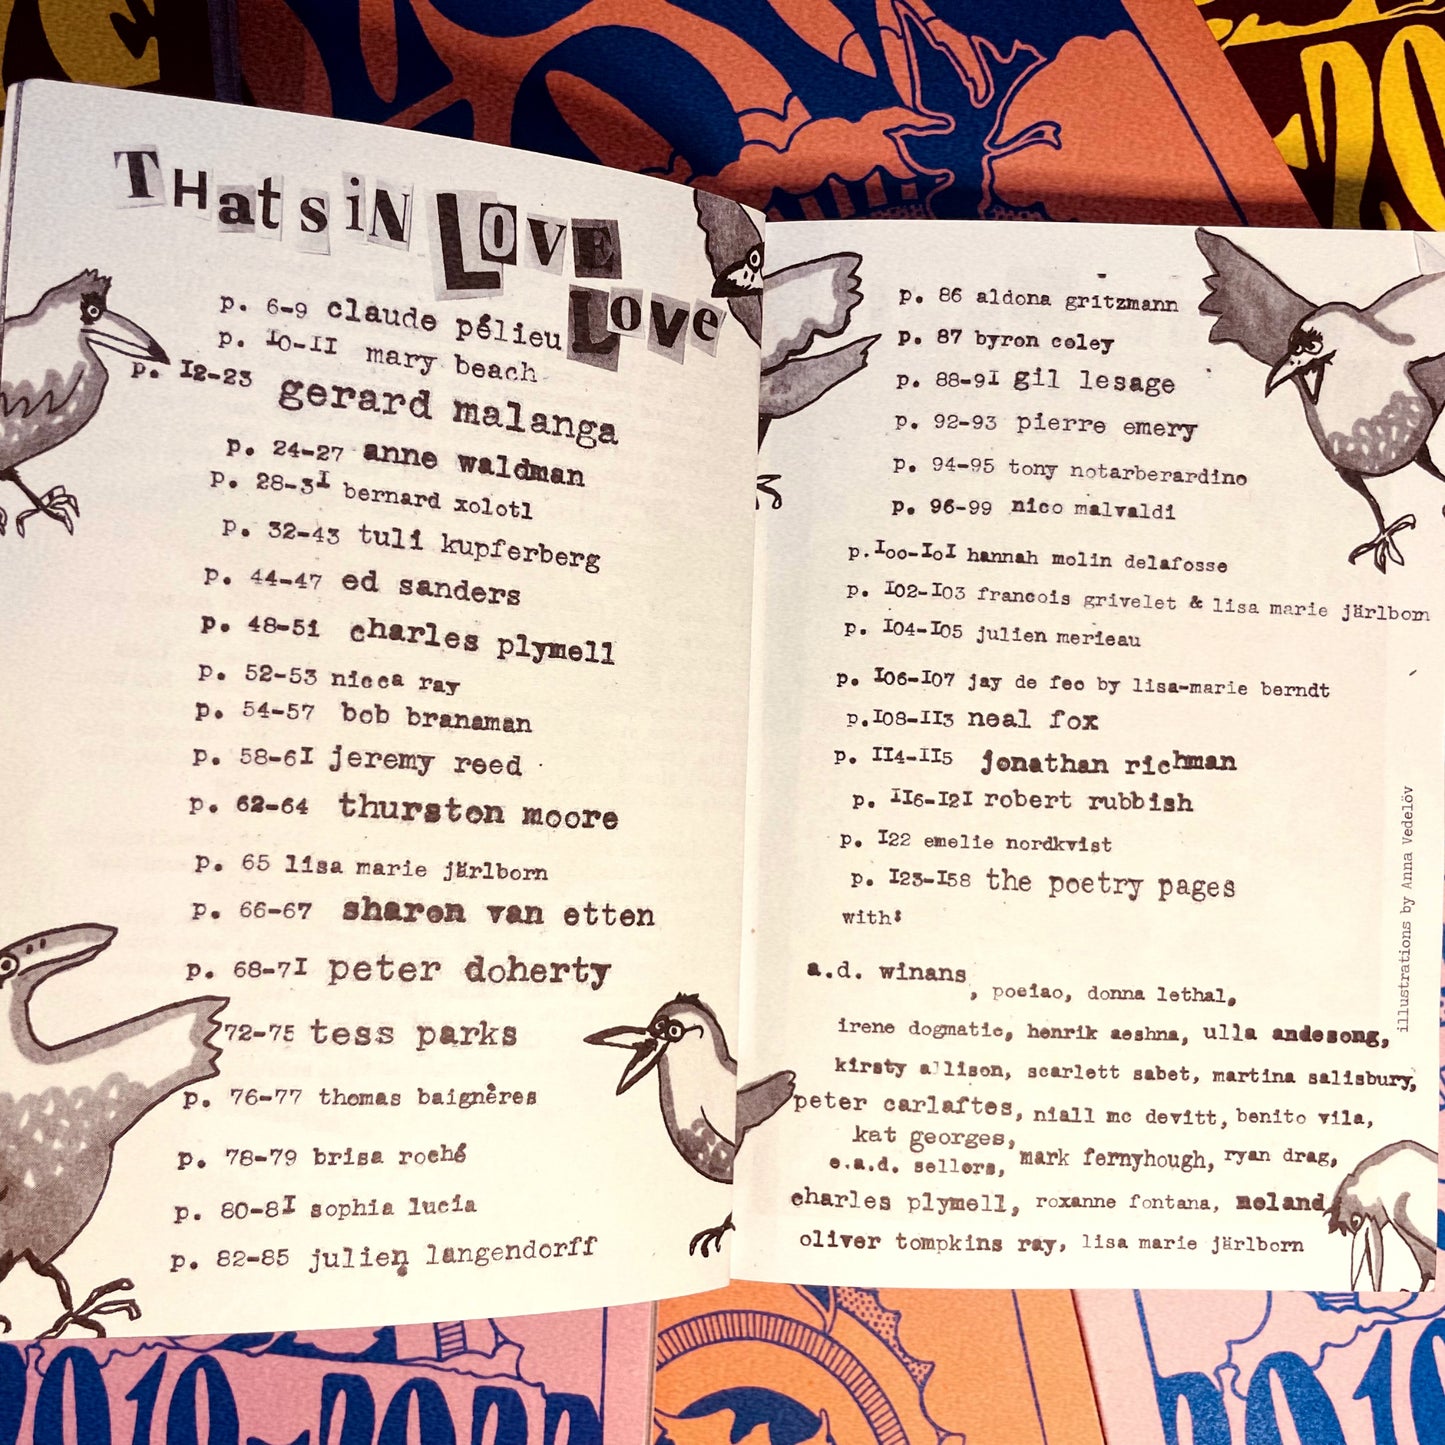 Thats iN LOVE
LOve
p. 6-9 claude pélieu
p. 10-11 mary beach
p. 12-23 gerard malanga
p. 24-27 anne waldman
p. 28-31 bernard xolotl
p. 32-43 tuli kupferberg
p. 44-47 ed sanders
p. 48-51 charles plymell
p. 52-53 nicca ray
p. 54-57 bob branaman
p. 58-61 jeremy reed
p. 62-64 thurston moore
p. 65 lisa marie järlborn
p. 66-67 sharon van etten
p. 68-71 peter doherty
72-75 tess parks
p. 76-77 thomas baignères
p. 78-79 brisa roché
p. 80-81 sophia lucia
p. 82-85 julien langendorff
p. 86 aldona gritzmann
p. 87 byron coley
p. 88-91 gil lesage
p. 92-93 pierre emery
p. 94-95 tony notarberardino
p. 96-99 nico malvaldi
p.100-101 hannah molin delafosse
p. 102-103 francois grivelet & lisa marie järlborn
p. 104-105 julien merieau
p. 106-107 jay de feo by lisa-marie berndt
p.108-113 neal fox
p. 114-115 jonathan richman
p. 116-121 robert rubbish
p. 122 emelie nordkvist
p. 123-158 the poetry pages
with:
a.d. winans, poeiao, donna lethal,
irene dogmatic, henrik aeshna, ulla andesong,
kirsty allison, scarlett sabet, martina salisbury,
peter carlaftes, niall mc devitt, benito vila,
kat georges,
e.a.d. sellors, mark fernyhough, ryan drag,
charles plymell, roxanne fontana, neland
oliver tompkins ray, lisa marie järlborn
illustrations by Anna Vedelöv
2019-2022
2019
20